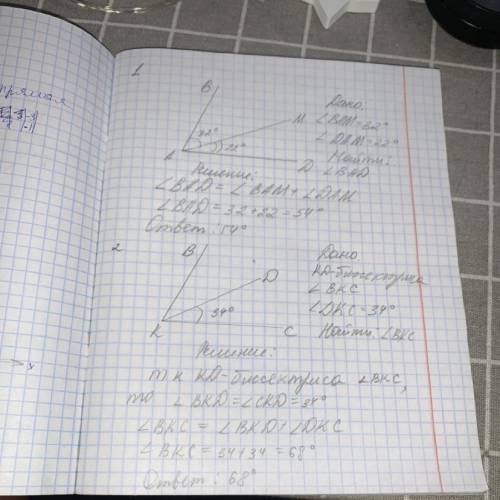 прямая
x
1
B
M
32°
22°
A
D
Дано:
∠BAM=32°
∠DAM=22°
Найти:
∠BAD
Решение:
∠BAD = ∠BAM + ∠DAM
∠BAD = 32+22=54°
Ответ: 54°
2
B
D
34°
K
C
Дано:
KD-биссектриса
∠BKC
∠DKC=34°
Найти: ∠BKC
Решение:
т к KD-биссектриса ∠BKC,
то ∠BKD=∠CKD=34°
∠BKC = ∠BKD+∠DKC
∠BKC = 34+34=68°
Ответ: 68°